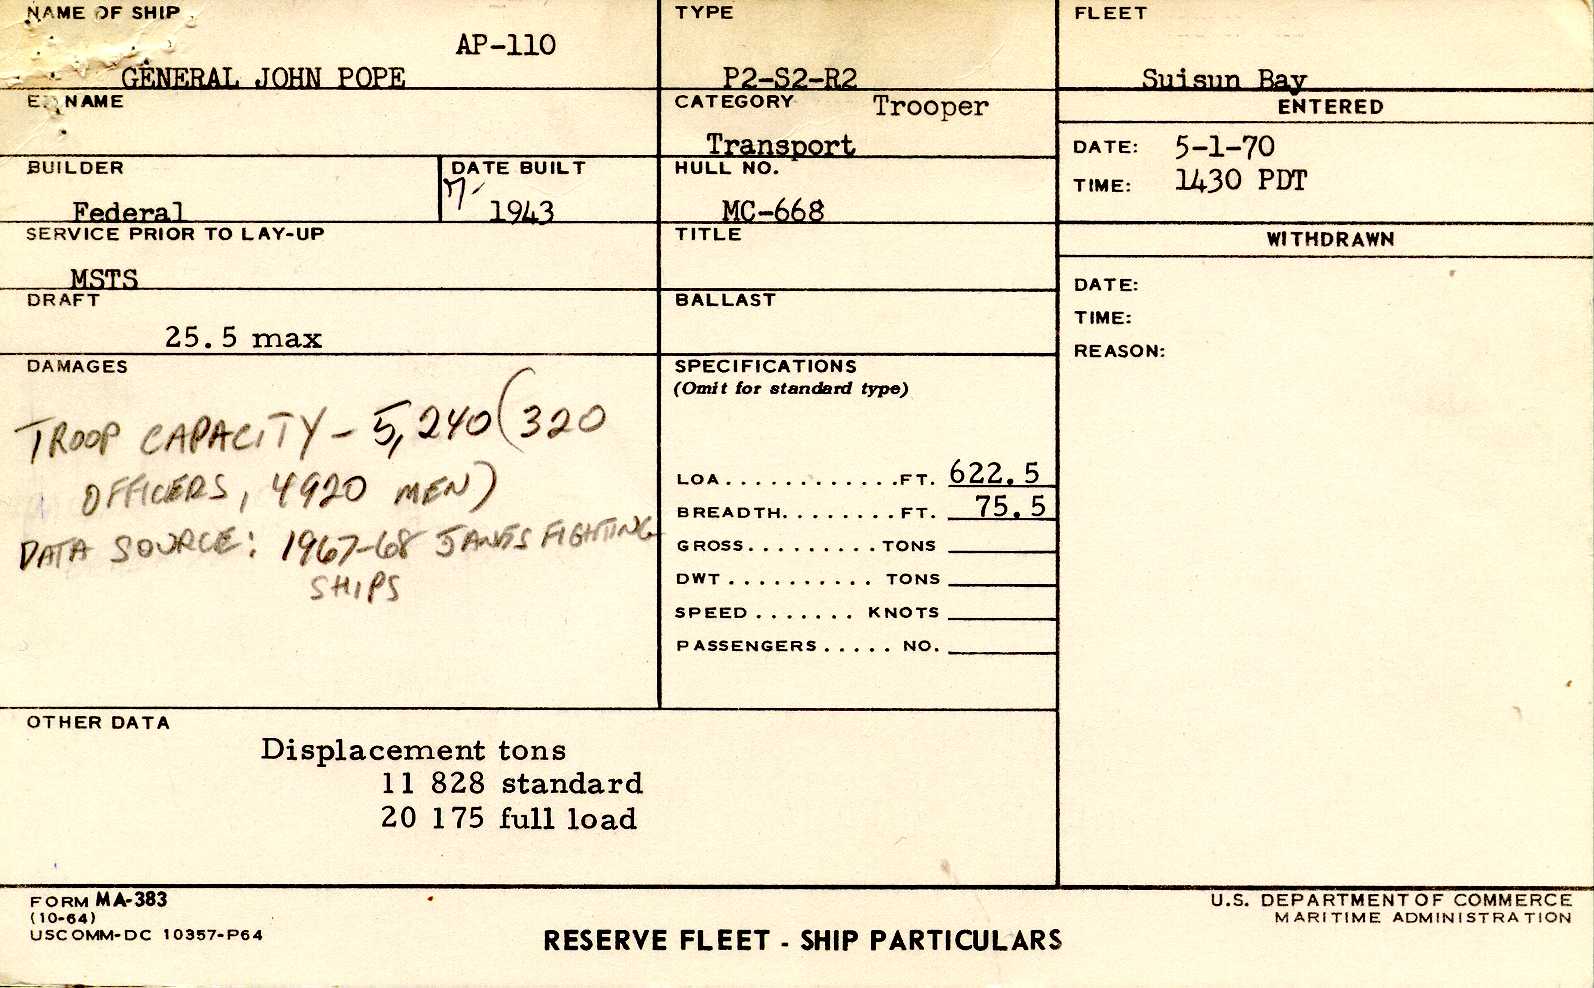 NAME OF SHIP
AP-110
GENERAL JOHN POPE
TYPE
P2-S2-R2
FLEET
Suisun Bay
NAME
CATEGORY Trooper
Transport
ENTERED
DATE: 5-1-70
TIME: 1430 PDT
BUILDER
Federal
DATE BUILT
7-
1943
HULL NO.
MC-668
SERVICE PRIOR TO LAY-UP
MSTS
TITLE
WITHDRAWN
DATE:
TIME:
REASON:
DRAFT
25.5 max
BALLAST
DAMAGES
TROOP CAPACITY - 5,240 (320
OFFICERS, 4920 MEN)
DATA SOURCE: 1967-68 JANES FIGHTING
SHIPS
SPECIFICATIONS
(Omit for standard type)
LOA.............FT. 622.5
BREADTH........FT. 75.5
GROSS.........TONS
DWT.......... TONS
SPEED....... KNOTS
PASSENGERS..... NO.
OTHER DATA
Displacement tons
11 828 standard
20 175 full load
FORM MA-383
(10-64)
USCOMM-DC 10357-P64
RESERVE FLEET - SHIP PARTICULARS
U.S. DEPARTMENT OF COMMERCE
MARITIME ADMINISTRATION